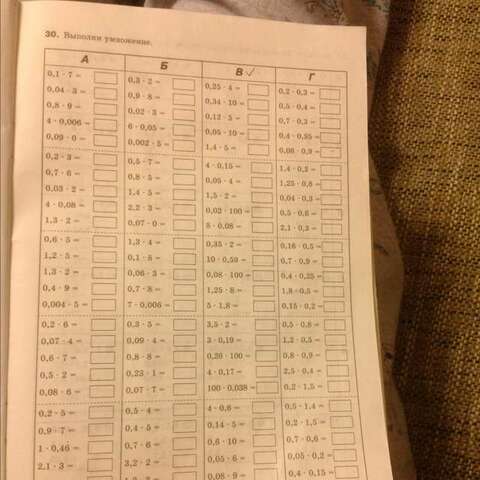 30. Выполни умножение.
А Б В✓ Г
0,1 · 7 = 0,3 · 2 = 0,25 · 4 = 0,2 · 0,3 =
0,04 · 3 = 0,9 · 8 = 0,34 · 10 = 0,5 · 0,4 =
0,8 · 9 = 0,02 · 3 = 0,12 · 5 = 0,7 · 0,3 =
4 · 0,006 = 6 · 0,05 = 0,05 · 10 = 0,4 · 0,25 =
0,09 · 0 = 0,002 · 5 = 1,4 · 5 = 0,06 · 0,9 =
0,2 · 3 = 0,5 · 7 = 4 · 0,15 = 1,4 · 0,2 =
0,7 · 6 = 0,8 · 5 = 0,05 · 4 = 1,25 · 0,8 =
0,03 · 2 = 1,4 · 5 = 1,5 · 2 = 0,04 · 0,3 =
4 · 0,08 = 2,2 · 3 = 0,02 · 100 = 0,5 · 0,6 =
1,3 · 2 = 0,07 · 0 = 5 · 0,08 = 2,1 · 0,3 =
0,6 · 5 = 1,3 · 4 = 0,35 · 2 = 0,16 · 0,5 =
1,2 · 5 = 0,1 · 8 = 10 · 0,59 = 0,7 · 0,9 =
1,3 · 2 = 0,06 · 3 = 0,08 · 100 = 0,4 · 0,25 =
0,4 · 9 = 0,7 · 8 = 1,25 · 8 = 1,8 · 0,5 =
0,004 · 5 = 7 · 0,006 = 5 · 1,8 = 0,15 · 0,2 =
0,2 · 6 = 0,3 · 5 = 3,5 · 2 = 0,5 · 0,8 =
0,07 · 4 = 0,09 · 4 = 3 · 0,19 = 1,2 · 0,5 =
0,6 · 7 = 0,8 · 8 = 0,26 · 100 = 0,8 · 0,9 =
0,5 · 2 = 0,23 · 1 = 4 · 0,17 = 2,5 · 0,4 =
0,08 · 6 = 0,07 · 7 = 100 · 0,038 = 0,2 · 1,5 =
0,2 · 5 = 0,5 · 4 = 4 · 0,6 = 0,5 · 1,4 =
0,9 · 7 = 0,4 · 5 = 0,14 · 5 = 0,2 · 1,5 =
1 · 0,46 = 0,7 · 6 = 0,6 · 10 = 0,7 · 0,6 =
2,1 · 3 = 3,2 · 2 = 0,05 · 6 = 0,05 · 0,2 =
0,08 · 9 = 0,4 · 0,15 =